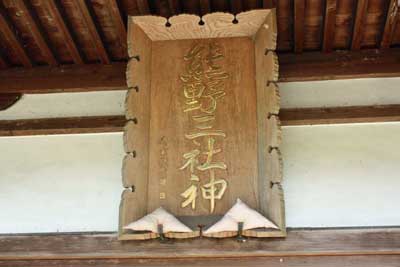 熊野三社神